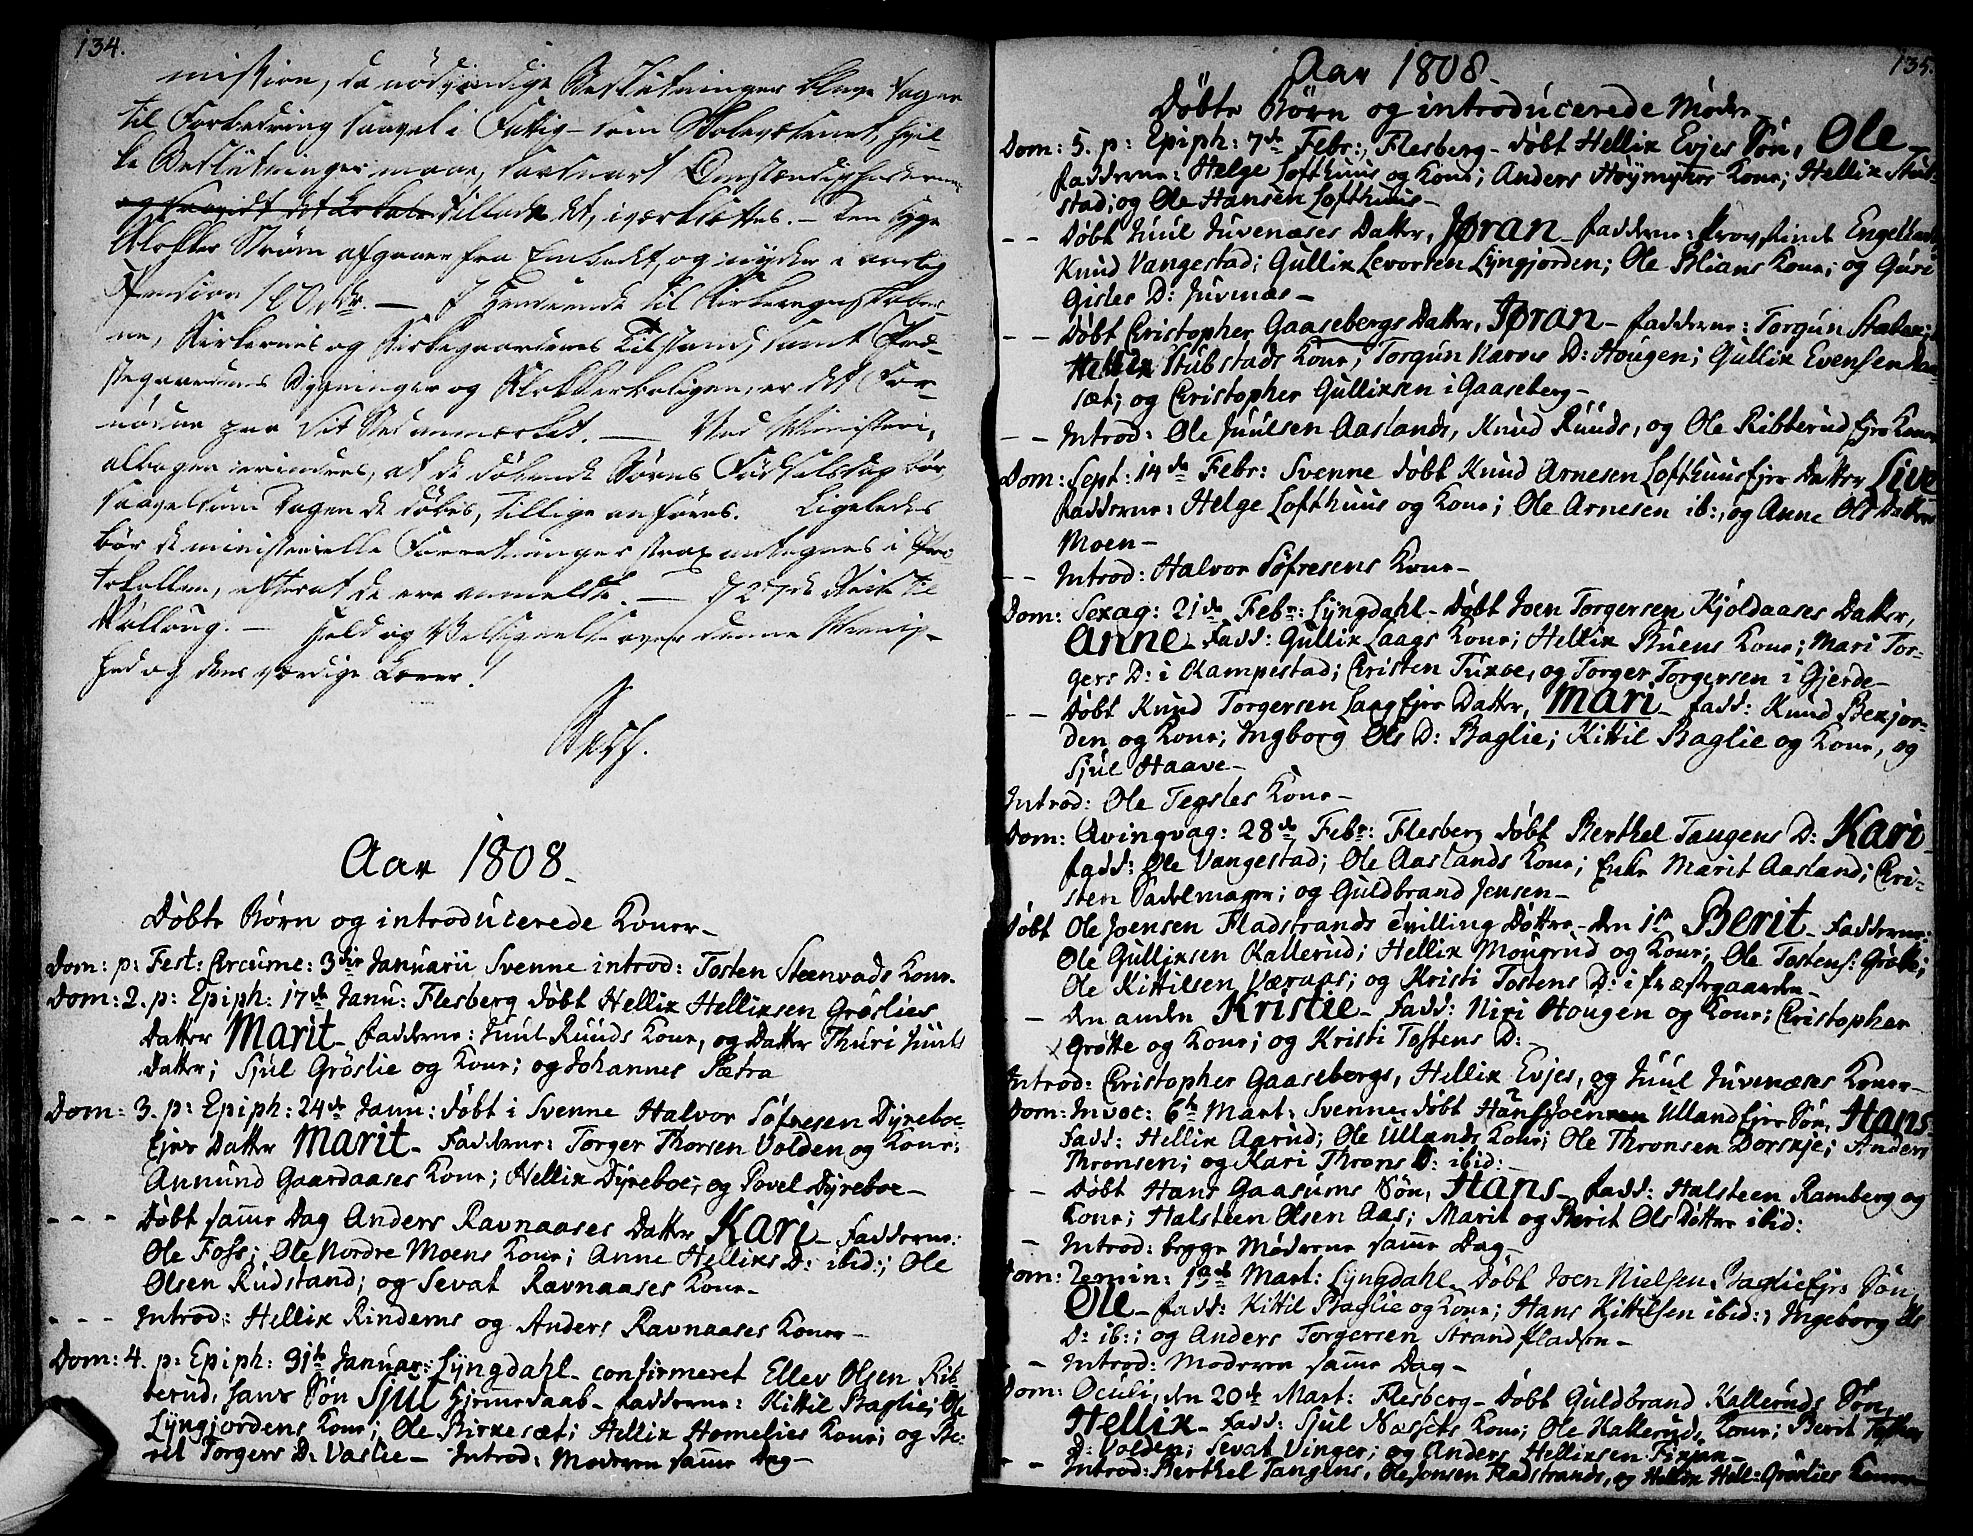 134.
mission, de nödvendige Beslutninger blive tagne
til Forbedring saavel i Fattig- som Skolevæsenet, hvil-
ke Beslutninger maae, saasnart Omstændighederne
tillade det, iværksættes. - Den syge
Klokker Strøm afgaaer fra Embedet, og nyder i aarlig
Pension 100 Rdr. - I Henseende til Kirkeregnskaber-
ne, Kirkernes og Kirkegaardenes Tilstand, samt Præ-
stegaardens Bygninger og Klokkerboligen, er det For-
nødne paa sit Sted anmærket. - Ved Ministeri-
albogen erindres, at de döbende Börns Födselsdag bör,
saavelsom Dagen de döbes, tillige anföres. Ligeledes
bör de ministerielle Forretninger strax antegnes i Pro-
tokollen, efterat de ere anmeldte. -
Rollaug. - Held og Velsignelse over denne Menig-
hed og dens værdige Lærer!
Aar 1808.
Döbte Börn og introducerede Koner-
Dom: p: Fest: Circumc: 3die Januarii Svenne introd: Tosten Steenvads Kone.
Dom: 2. p: Epiph: 17de Janu: Flesberg döbt Hellik Helliksen Gröslies
Datter Marit- Fadderne: Juul Ruuds Kone, og Datter Thuri Juuls
Datter; Sjul Gröslie og Kone; og Johannes Pætra
Dom: 3. p: Epiph: 24de Janu: döbt i Svenne Halvor Söfresen Dyreboe
Ejer Datter Marit- Fadderne: Torger Thorsen Volden og Kone;
Annund Gaardaases Kone; Hellik Dyreboe; og Povel Dyreboe-
- - - Döbt samme Dag Anders Ravnaases Datter Kari- Fadderne:
Ole Foss; Ole Nordre Moens Kone; Anne Helliks D: ibid:; Ole
Olsen Rudstand; og Sevat Ravnaases Kone-
- - - Introd: Hellik Rindems og Anders Ravnaases Koner-
Dom: 4. p: Epiph: 31te Januar: Lyngdahl- confirmeret Ellev Olsen Rib-
berud, hans Sön Sjul hjemmedaab- Fadderne: Kittil Baglie; Ole
Lyngjordens Kone; Ole Birkesæt; Hellik Homelies Kone; og Be-
rit Torgers D: Vaslie- Introd: Moderen samme Dag-
135.
Aar 1808.
Döbte Börn og introducerede Mödre
Dom: 5. p: Epiph: 7de Febr:, Flesberg- döbt Hellik Evjes Sön, Ole-
Fadderne: Helge Lofthuus og Kone; Anders Höymyhrs Kone; Hellik Stub-
stad; og Ole Hansen Lofthuus-
- - Döbt Juul Juvenæses Datter, Jøran- Fadderne: Provstinde Engelhardt,
Knud Vangestad; Gullik Levorsen Lyngjorden; Ole Blians Kone; og Guri
Gisles D: Juvenæs-
- - Döbt Christopher Gaasebergs Datter, Jøran- Fadderne: Torgun Stubstad;
Hellik Stubstads Kone; Torgun Narves D: Hougen; Gullik Evensen
sæt; og Christopher Gulliksen i Gaaseberg-
- - Introd: Ole Juulsen Aaslands, Knud Ruuds, og Ole Ribberud Ejers Koner
Dom: Sept: 14de Febr: Svenne döbt Knud Arnesen Lofthuus Ejers Datter Sive
Fadderne: Helge Lofthuus og Kone; Ole Arnesen ib:, og Anne Ols Datter
Moen-
- - Introd: Halvor Söfresens Kone-
Dom: Sexag: 21de Febr: Lyngdahl- Döbt Joen Torgersen Kjoldaases Datter,
Anne- Fadd: Gullik Laags Kone; Hellik Buens Kone; Mari Tor-
gers D: i Kampestad; Christen Tukve, og Torger Torgersen i Gjerde-
- - Döbt Knud Torgersen Laag Ejers Datter, Mari- Fadd: Knud Bekjor-
den og Kone; Ingborg Ols D: Baglie; Kittil Baglie og Kone, og
Sjul Haave-
Introd: Ole Tegsles Kone-
Dom: Qvinqvag: 28de Febr: Flesberg döbt Berthel Tangens D: Kari-
Fadd: Ole Vangestad; Ole Aaslands Kone; Enke Marit Aasland; Chri-
sten Sadelmager; og Guldbrand Jensen-
Döbt Ole Joensen Fladstrands Tvilling Döttre- den 1te Berit- Fadderne:
Ole Gulliksen Kallerud; Hellik Mougrud og Kone; Ole Tostens: Grötte;
Ole Kittilsen Væraas; og Kristi Tostens D: i Præstegaarden-
- den anden Kristie- Fadd: Niri Hougen og Kone; Christopher
Grötte og Kone; og Kristi Tostens D:-
Introd: Christopher Gaasebergs, Hellik Evjes, og Juul Juvenæses Koner-
Dom: Invoc: 6te Mart: Svenne döbt Hans Joensen Ulland Ejers Sön, Hans-
Fadd: Hellik Aarud; Ole Ullands Kone; Ole Thronsen Dorskje; Anders
Thronsen; og Kari Throns D: ibid:-
- - Döbt Hans Gaasums Sön, Hans- Fadd: Halsteen Ramberg og
Kone; Halsteen Olsen Aas; Marit og Berit Ols Döttre ibid:
- Introd: begge Möderne samme Dag-
Dom: Remin: 13de Mart: Lyngdahl- Döbt Joen Nielsen Baglie Ejers Sön,
Ole- Fadd: Kittil Baglie og Kone; Hans Kittilsen ibid:; Ingeborg Ols
D: ib:; og Anders Torgersen Strandfladsen-
- Introd: Moderen samme Dag-
Dom: Oculi, den 20de Mart: Flesberg- Döbt Guldbrand Kalleruds Sön,
Hellik- Fadd: Sjul Næssets Kone; Ole Kalleruds Kone; Berit Tostens
D: Volden; Sevat Vinger; og Anders Helliksen Fixjan-
- - Introd: Berthel Tangens, Ole Jonsen Fladstrands, og Hellik Hell: Gröslies Koner-